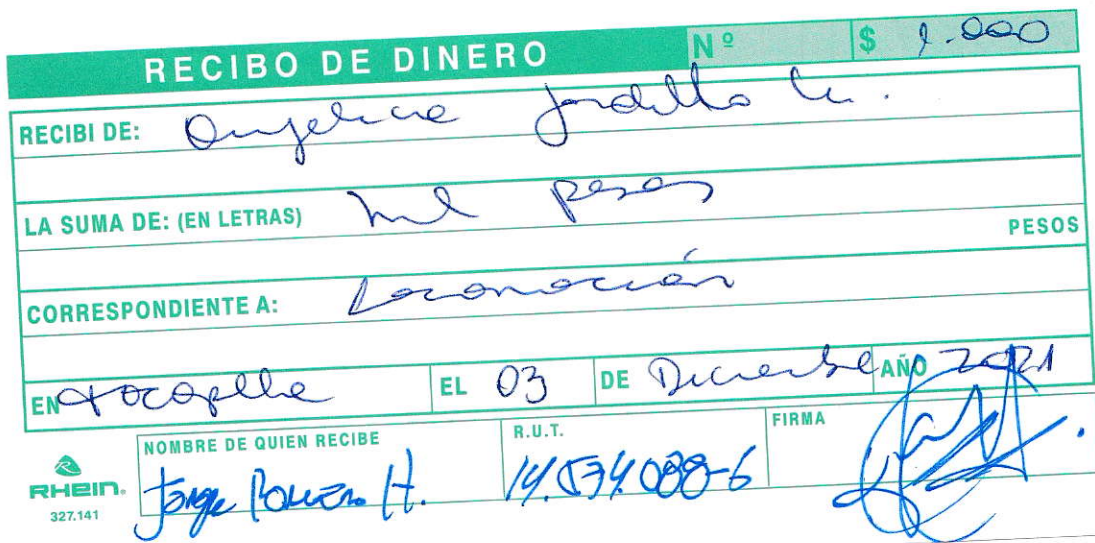 RECIBO DE DINERO Nº $ 1.000
RECIBI DE: Angelica
LA SUMA DE: (EN LETRAS) mil pesos
PESOS
CORRESPONDIENTE A: Locomoción
EN Tocopilla EL 03 DE Diciembre AÑO 2021
NOMBRE DE QUIEN RECIBE R.U.T. FIRMA
Jorge H. 14.574.088-6
RHEIN.
327.141